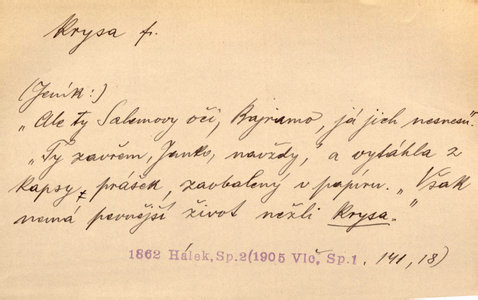 Krysa f.
(Jeník:)
„Ale ty Salemovy oči, Bajramo, já jich nesnesu".
„Ty zavřem, Janko, navždy, a vytáhla z
kapsy prášek, zaobalený v papíru. „Však
nemá pevnější život nežli krysa."
1862 Hálek, Sp.2(1905 Vlč, Sp.1. 141, 18)